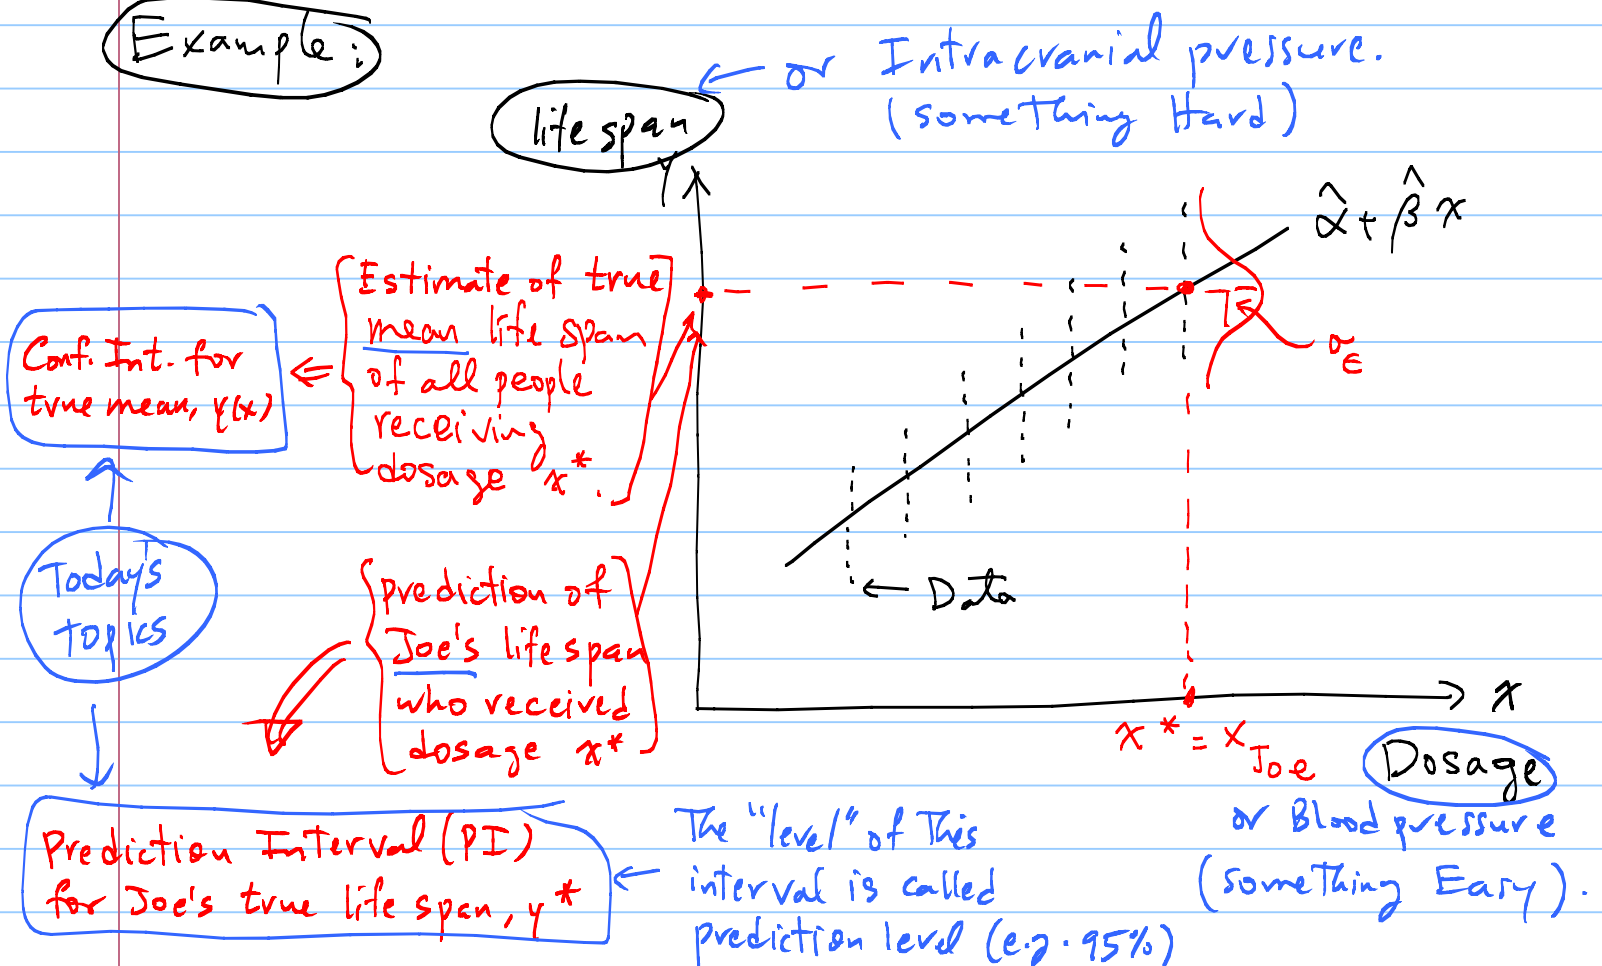 Example:
← or Intracranial pressure.
(something Hard)
life span
y
α̂ + β̂ x
Estimate of true
mean life span
of all people
receiving
dosage x*.
Conf. Int. for
true mean, y(x)
σ_ε
Today's
Topics
← Data
prediction of
Joe's life span
who received
dosage x*
x
x* = x_Joe
Dosage
or Blood pressure
(something Easy).
Prediction Interval (PI)
for Joe's true life span, y*
← The "level" of This
interval is called
prediction level (e.g. 95%)